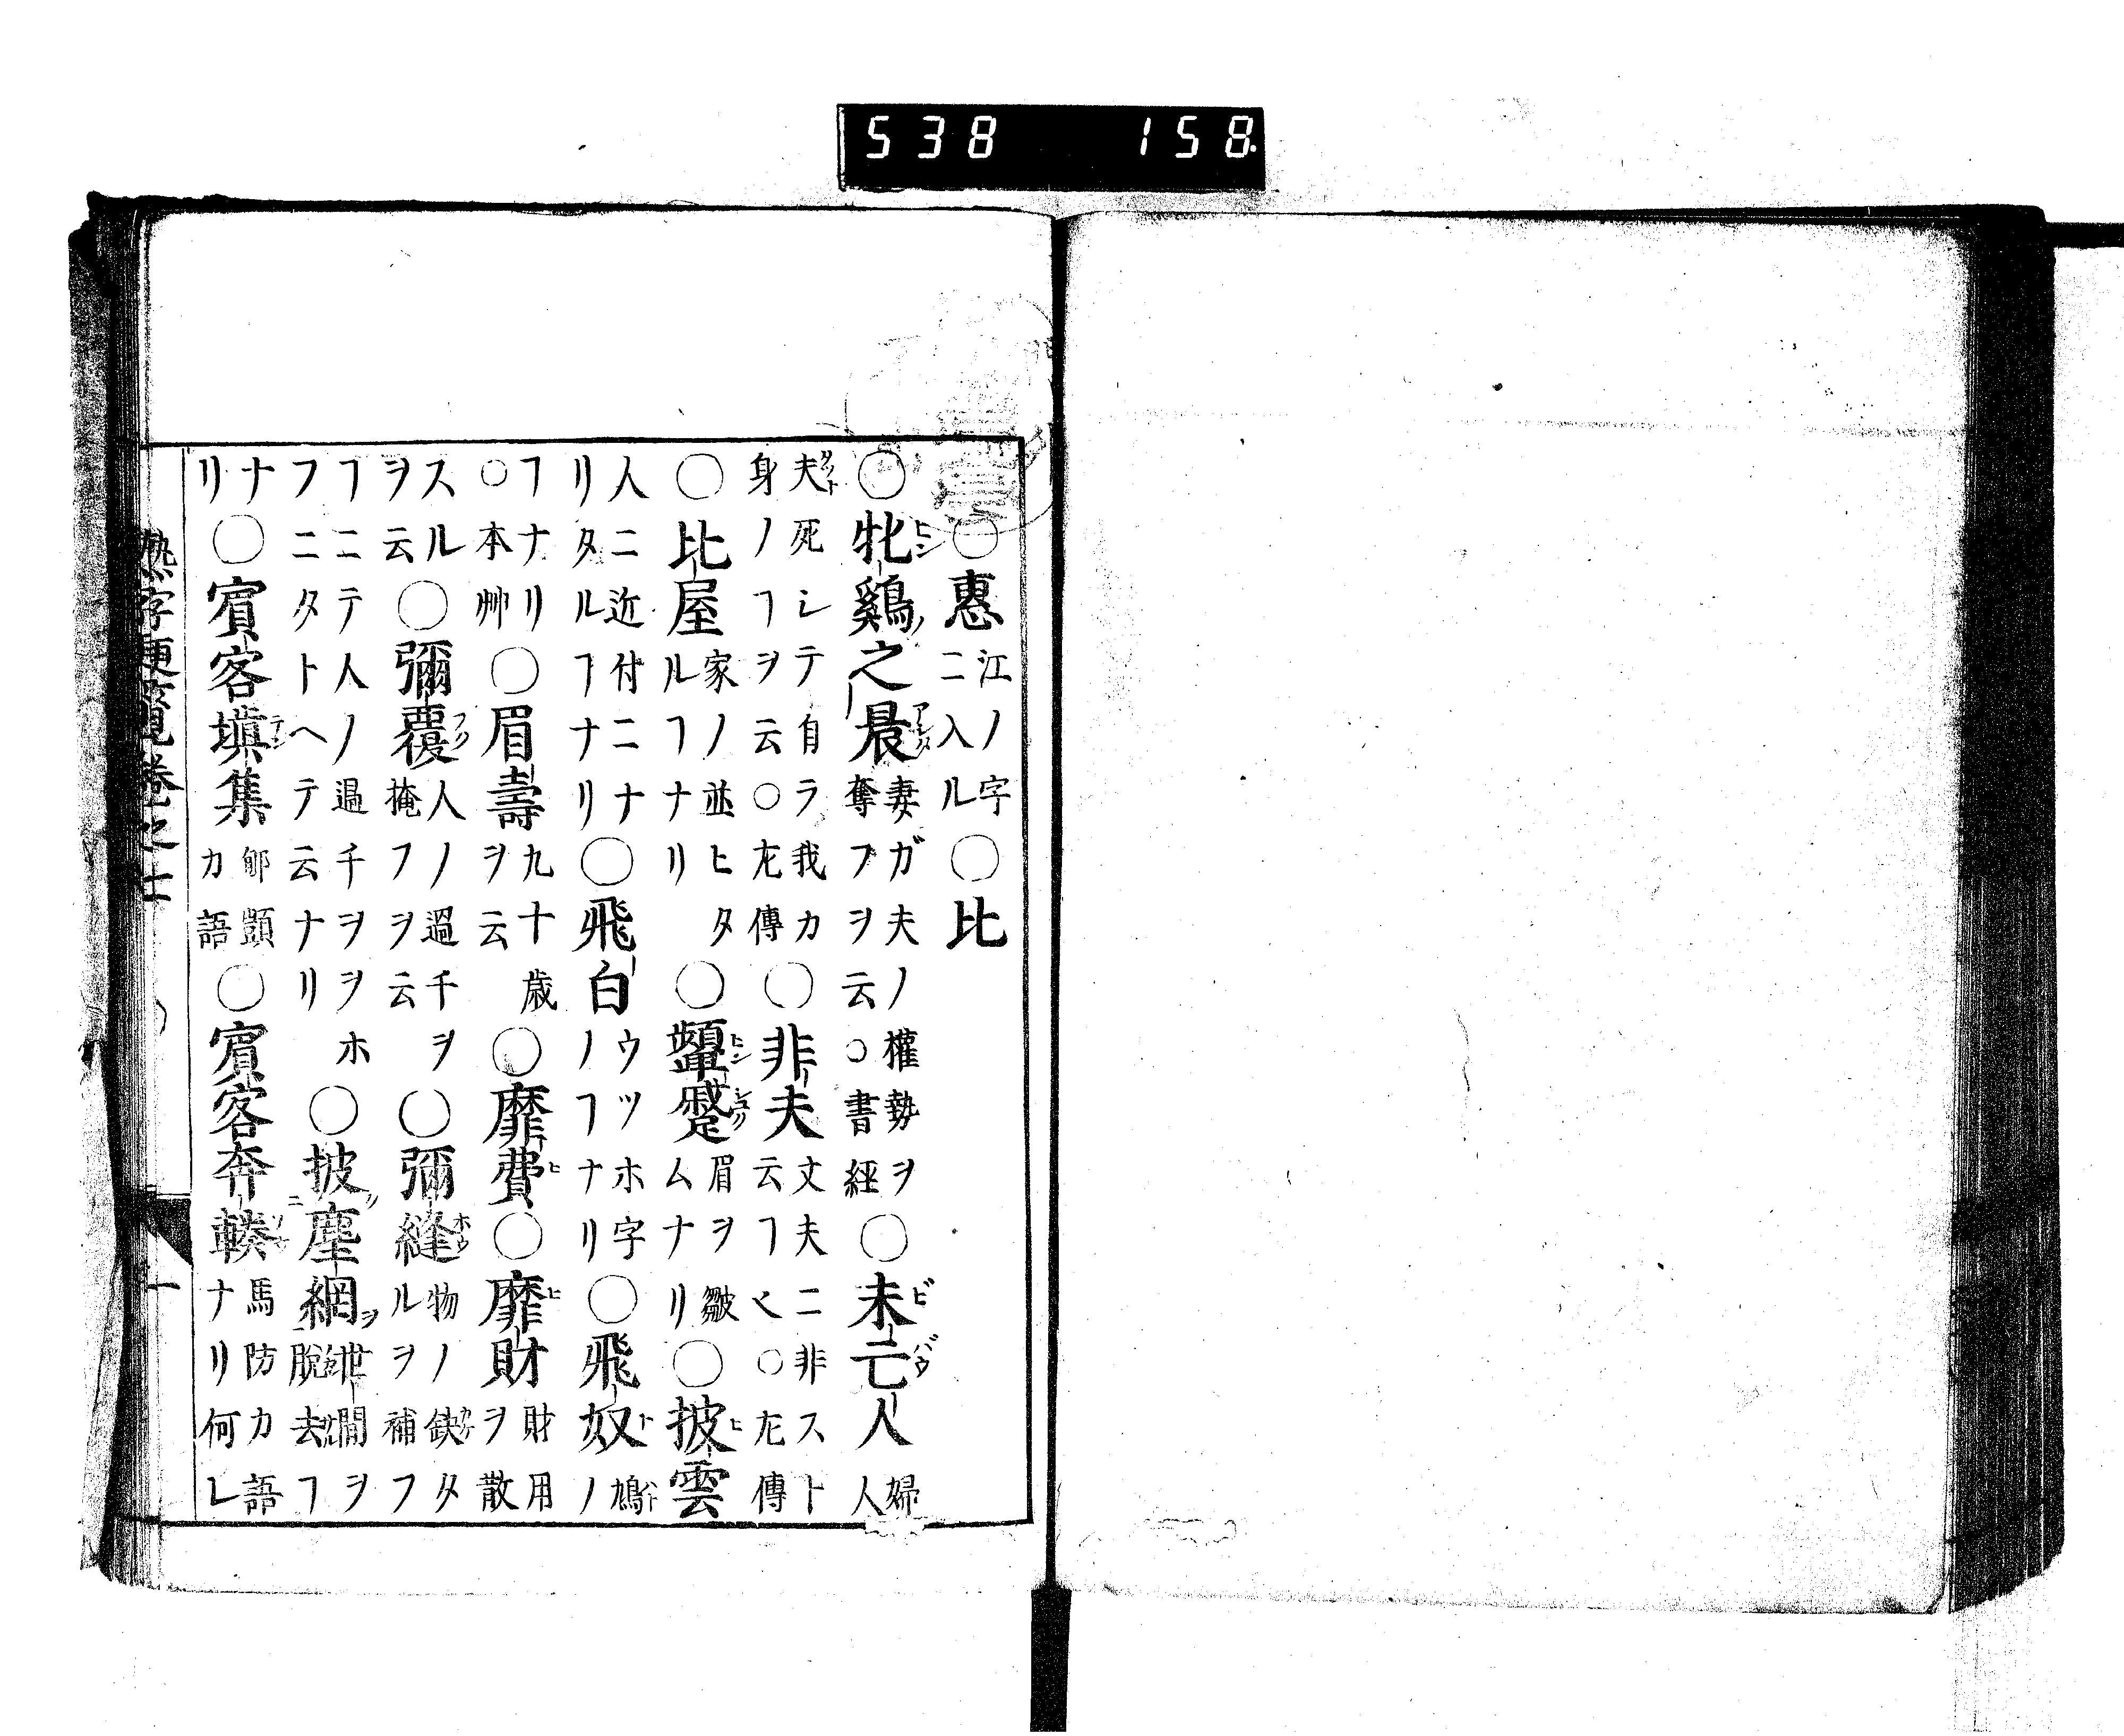 538 158
○惠江ノ字ニ入ル○比
○牝鷄之晨妻ガ夫ノ權勢ヲ奪フヲ云○書經○未亡人婦人
夫死シテ自ラ我カ身ノヿヲ云○左傳○非夫丈夫ニ非スト云ヿ〱○左傳
○比屋家ノ並ヒタルヿナリ○顰蹙眉ヲ皺ムナリ○披雲
人ニ近付ニナリタルヿナリ○飛白ウツホ字ノヿナリ○飛奴鳩ノ
ヿナリ○本艸○眉壽九十歳ヲ云○靡費○靡財財用ヲ散
スルヲ云○彌覆人ノ過千ヲ掩フヲ云○彌縫物ノ鈌タルヲ補フ
ヿニテ人ノ過千ヲヲホフニタトヘテ云ナリ○披塵網世間ヲ脫去ヿ
ナリ○賓客塡集郇顗カ語○賓客奔輳馬防カ語ナリ何レ
熟字便覽卷之士 一